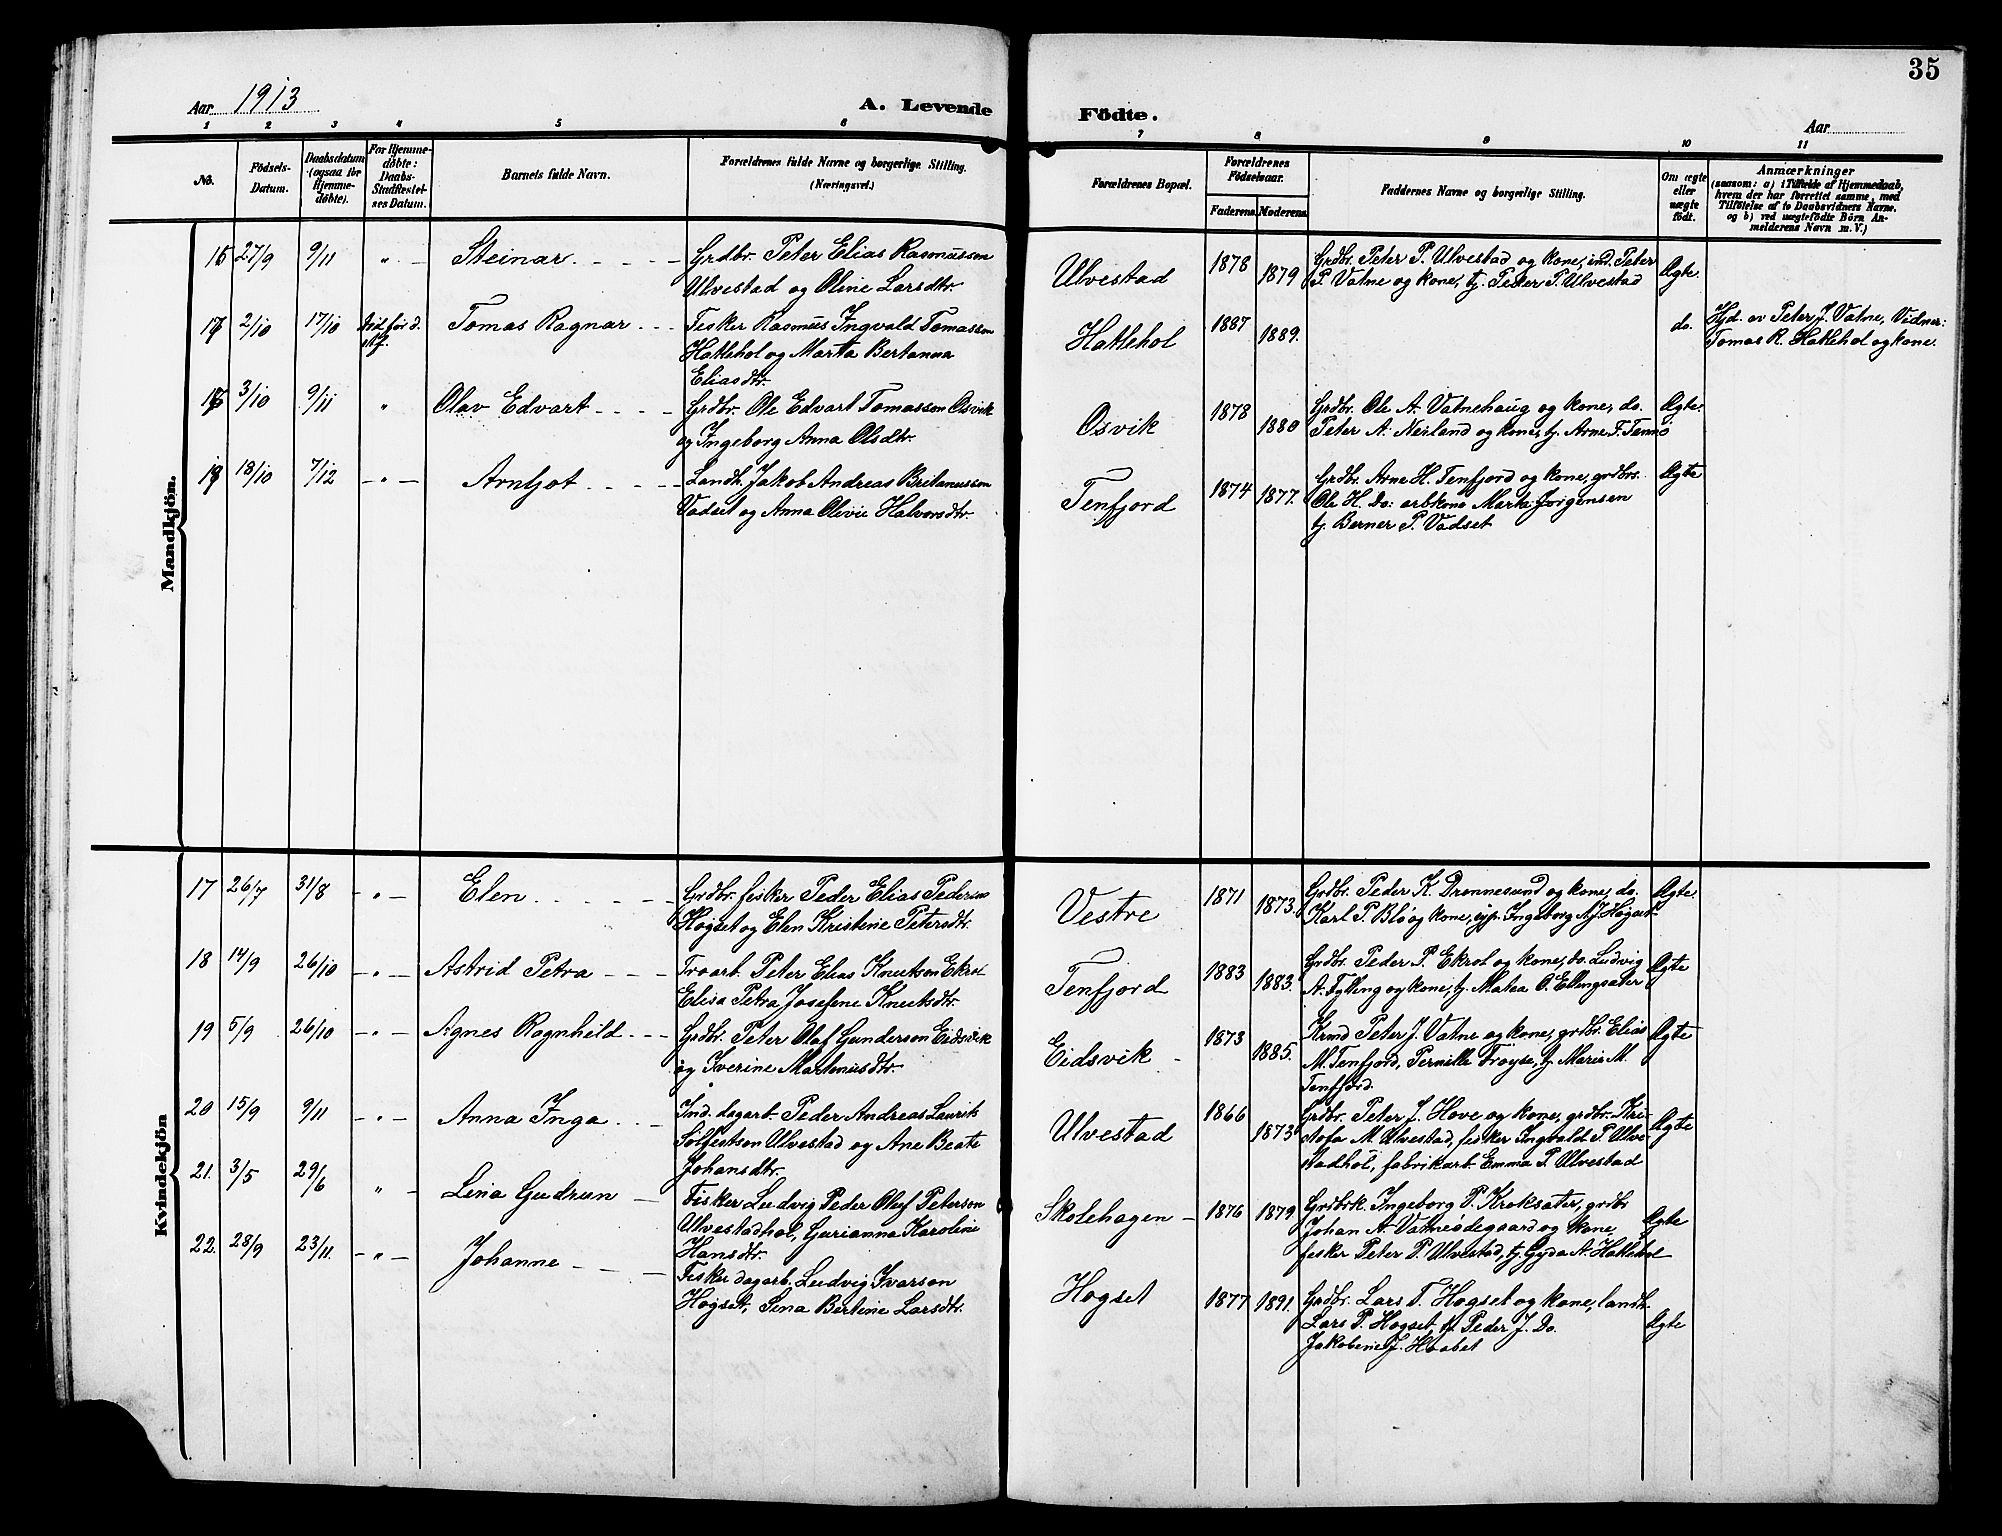 35
Aar 1913
A. Levende
Födte.
Aar
1 2 3 4 5 6 7 8 9 10 11
No.
Födsels-
Datum.
Daabsdatum
(ogsaa for
Hjemme-
döbte).
For Hjemme-
döbte:
Daabs-
Stadfæstel-
ses Datum.
Barnets fulde Navn.
Forældrenes fulde Navne og borgerlige Stilling.
(Næringsvei.)
Forældrenes Bopæl.
Forældrenes
Födselsaar.
Faderens. Moderens.
Faddernes Navne og borgerlige Stilling.
Om ægte
eller
uægte
födt.
Anmærkninger
(saasom: a) i Tilfælde af Hjemmedaab,
hvem der har forrettet samme, med
Tilföielse af to Daabsvidners Navne.
og b) ved uægtefödte Börn An-
melderens Navn m. V.)
Mandkjön.
27/9 9/11 " - Steinar - - - - Grdbr. Peter Elias Rasmussen
Ulvestad og Oline Larsdtr.
Ulvestad 1878 1879
Grdbr. Peter P. Ulvestad og kone, ind. Peter
P. Vatne og kone, tj. Peder P. Ulvestad
Ægte.
17 2/10 17/10 Død før d.
stf.
Tomas Ragnar - - Fisker Rasmus Ingvald Tomassen
Hatlehol og Marta Bertanna
Eliasdtr.
Hatlehol 1887 1889.
do.
Hjd. av Peter J. Vatne, Vidner:
Tomas R. Hatlehol og kone.
3/10 9/11 " Olav Edvart - - - - Grdbr. Ole Edvart Tomassen Osvik
og Ingeborg Anna Olsdtr.
Osvik 1878 1880
Grdbr. Ole A. Vatnehaug og kone, do.
Peter A. Nerland og kone, tj. Arne F. Tennø
Ægte.
19 18/10 7/12 - " - Arnljot - - - - Landh. Jakob Andreas Britanussen
Vadset og Anna Olivie Halvorsdtr.
Tenfjord 1874 1877.
Grdbr. Arne H. Tenfjord og kone, grdbrs.
Ole H. Do. arbkone Marta Jørgensen
tj. Berner P. Vadset
Ægte
Kvindekjön
17 26/7 31/8 - " - Elen - - - - - Grdbr. fisker Peder Elias Pedersen
Hogset og Elen Kristine Petersdtr.
Vestre 1871 1873.
Grdbr. Peder K. Drønnesund og kone, do.
Karl P. Blø og kone, syp. Ingeborg A. J. Hogset
Ægte.
18 14/9 26/10 - " - Astrid Petra - - - Troarb. Peter Elias Knutsen Ekrol
Elisa Petra Josefine Knutsdtr.
Tenfjord 1883 1883.
Grdbr. Peder P. Ekrol og kone, do. Ludvig
A. Fylling og kone, tj. Matea O. Ellingsæter
Ægte
19 5/9 26/10 - " - Agnes Ragnhild - - Grdbr. Peter Olaf Gunderson Eidsvik
og Iverine Martinusdtr.
Eidsvik - 1873 1885.
Krmd Peter J. Vatne og kone, grdbr. Elias
M. Tenfjord, Pernille Frøyse, tj. Marie M.
Tenfjord.
Ægte
20 15/9 9/11 - " - Anna Inga - - Ind. dagarb. Peder Andreas Laurits
Solfestsen Ulvestad og Ane Beate
Johansdtr.
Ulvestad 1866 1873
Grdbr. Peter J. Hove og kone, grdbr. Kri-
stofa M. Ulvestad, fisker Ingvald P. Ulve-
stadhol, fabrikarb. Emma P. Ulvestad
Ægte
21. 3/5 29/6 " - Lina Gudrun - Fisker Ludvig Peder Oluf Petersen
Ulvestadhol, Gurianna Karoline
Hansdtr.
Skolehagen - 1876 1879
Grdbrk. Ingeborg P. Kroksæter, grdbr
Johan A. Vatneødegaard og kone,
fisker Peter P. Ulvestad, tj. Gyda A. Hatlehol
Ægte
22. 28/9 23/11. - " - Johanne - - - Fisker dagarb. Ludvig Ivarsen
Hogset, Sina Bertine Larsdtr.
Hogset 1877 1891.
Grdbr. Lars T. Hogset og kone, landh.
Lars P. Hogset, tj. Peder J. Do.
Jakobine J. Haabet
Ægte